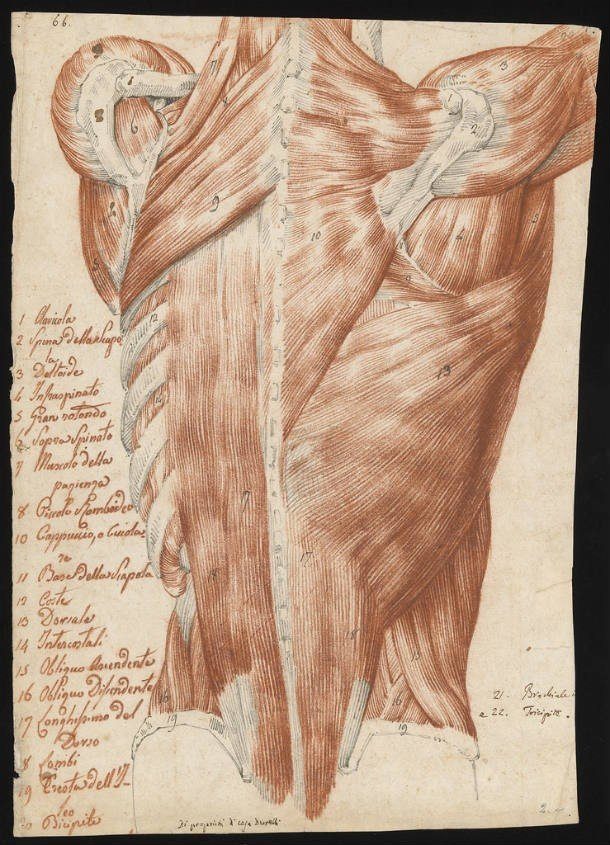 66.
1 Clavicola
2 Spina della Scapo
la
3 Deltoide
4 Infraspinato
5 Gran rotondo
6 Sopra Spinato
7 Muscolo della
pazienza
8 Piccolo Romboideo
10 Cappuccio, o Cucola
re
11 Base della Scapola
12 Coste
13 Dorsale
14 Intercostali
15 Obliquo Ascendente
16 Obliquo Discendente
17 Longhissimo del
Dorso
8 Lombi
19 Cresta dell'I
leo
20 Bicipite
21. Brachiale
e 22. Tricipite.
Di proprietà di casa